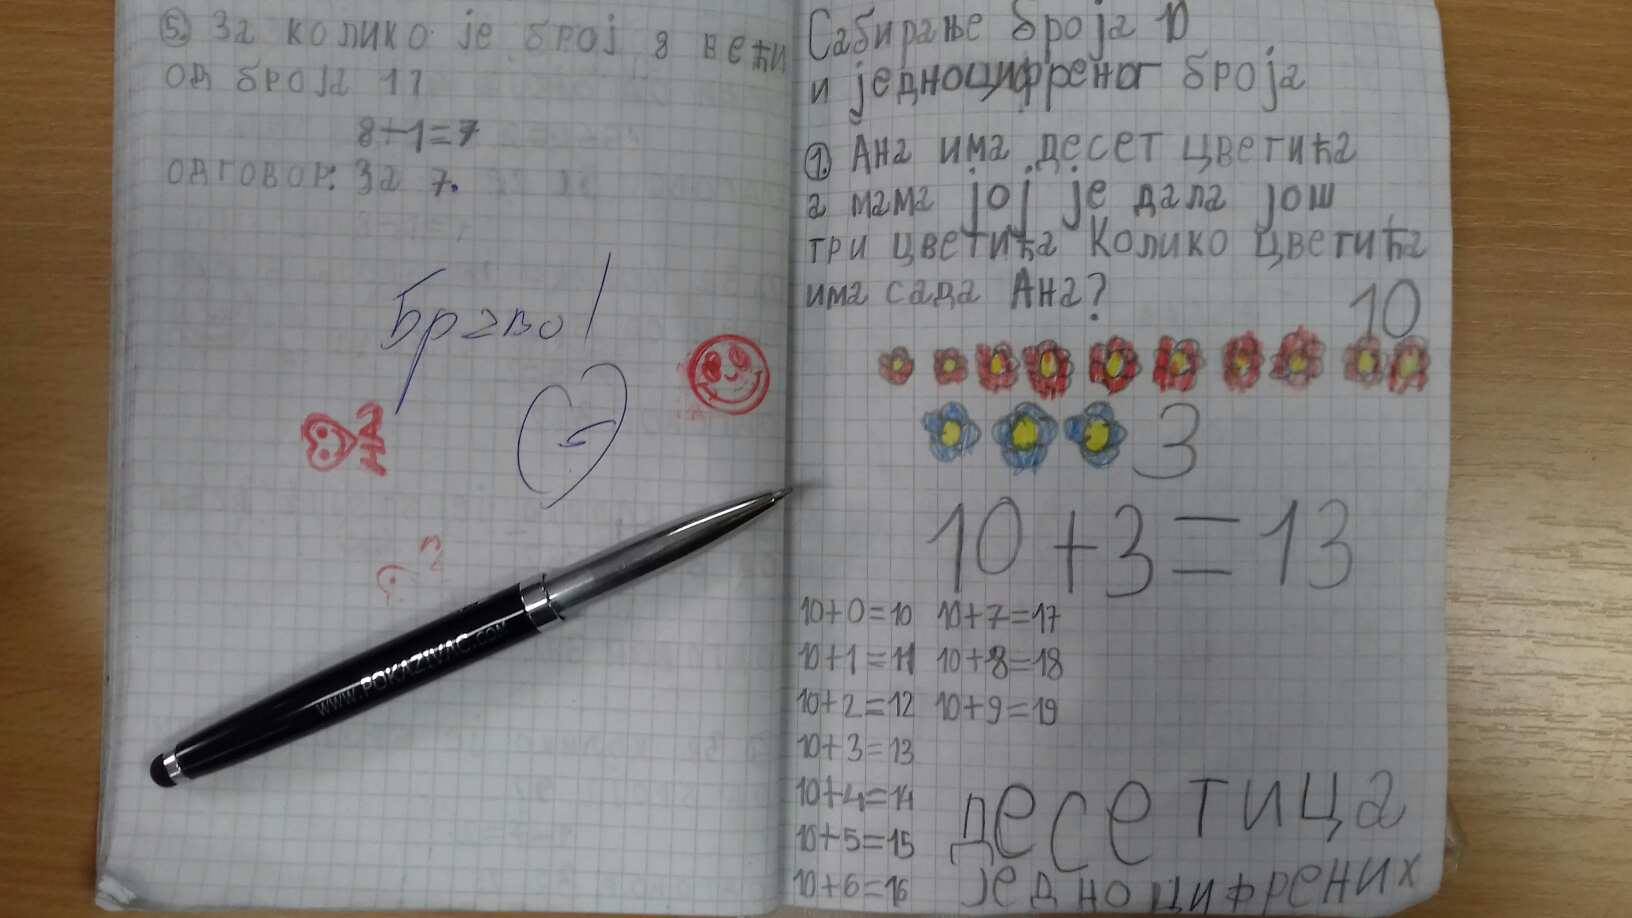 5. За колико је број 8 већи
од броја 1?
8-1=7
одговор: За 7.
Браво!
5
WWW.POKAZIVAC.COM
Сабирање броја 10
и једноцифреног броја
1. Ана има десет цветића
а мама јој је дала још
три цветића Колико цветића
има сада Ана?
10
3
10+3=13
10+0=10 10+7=17
10+1=11 10+8=18
10+2=12 10+9=19
10+3=13
10+4=14
10+5=15
10+6=16
десетица
једноцифрених